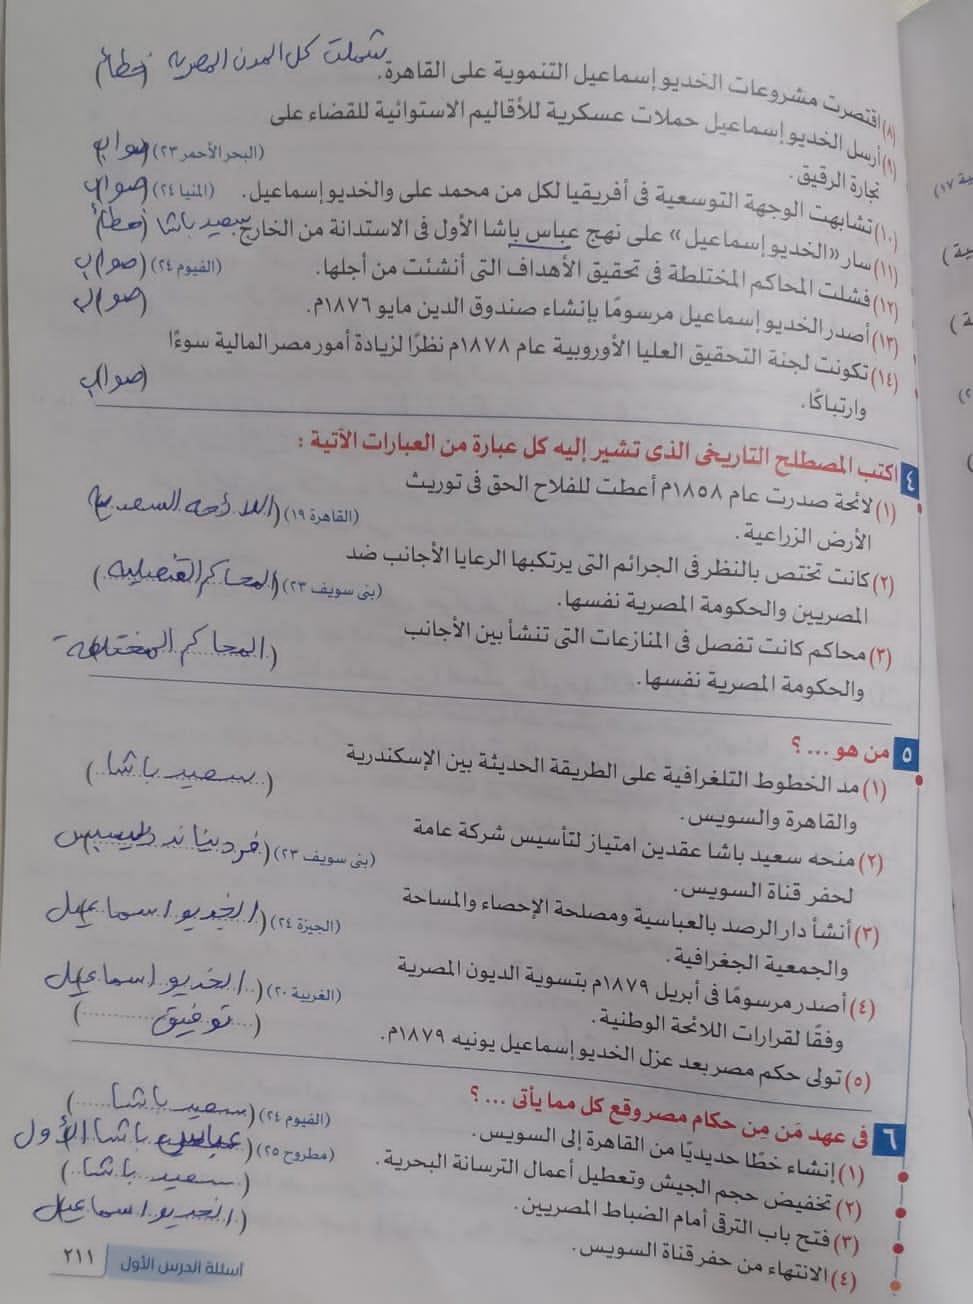 (٨) اقتصرت مشروعات الخديو إسماعيل التنموية على القاهرة. شملت كل المدن المصرية (خطأ)
(٩) أرسل الخديو إسماعيل حملات عسكرية للأقاليم الاستوائية للقضاء على
تجارة الرقيق. (البحر الأحمر ٢٣) (صواب)
(١٠) تشابهت الوجهة التوسعية فى أفريقيا لكل من محمد على والخديو إسماعيل. (المنيا ٢٤) (صواب)
(١١) سار «الخديو إسماعيل» على نهج عباس باشا الأول فى الاستدانة من الخارج. سعيد باشا (خطأ)
(١٢) فشلت المحاكم المختلطة فى تحقيق الأهداف التى أنشئت من أجلها. (الفيوم ٢٤) (صواب)
(١٣) أصدر الخديو إسماعيل مرسومًا بإنشاء صندوق الدين مايو ١٨٧٦م. (صواب)
(١٤) تكونت لجنة التحقيق العليا الأوروبية عام ١٨٧٨م نظرًا لزيادة أمور مصر المالية سوءًا
وارتباكًا. (صواب)
٤ اكتب المصطلح التاريخى الذى تشير إليه كل عبارة من العبارات الآتية :
(١) لائحة صدرت عام ١٨٥٨م أعطت للفلاح الحق فى توريث
الأرض الزراعية. (القاهرة ١٩) (اللائحه السعديه
(٢) كانت تختص بالنظر فى الجرائم التى يرتكبها الرعايا الأجانب ضد
المصريين والحكومة المصرية نفسها. (بنى سويف ٢٣) (المحاكم القنصليه)
(٣) محاكم كانت تفصل فى المنازعات التى تنشأ بين الأجانب
والحكومة المصرية نفسها. (المحاكم المختلطة
٥ من هو ... ؟
(١) مد الخطوط التلغرافية على الطريقة الحديثة بين الإسكندرية
والقاهرة والسويس. (سعيد باشا)
(٢) منحه سعيد باشا عقدين امتياز لتأسيس شركة عامة
لحفر قناة السويس. (بنى سويف ٢٣) (فردیناند دليسبس
(٣) أنشأ دار الرصد بالعباسية ومصلحة الإحصاء والمساحة
والجمعية الجغرافية. (الجيزة ٢٤) (الخديو اسماعيل
(٤) أصدر مرسومًا فى أبريل ١٨٧٩م بتسوية الديون المصرية
وفقًا لقرارات اللائحة الوطنية. (الغربية ٢٠) (الخديو اسماعيل
(٥) تولى حكم مصر بعد عزل الخديو إسماعيل يونيه ١٨٧٩م. (توفيق)
٦ فى عهد مَن مِن حكام مصر وقع كل مما يأتى ... ؟
(١) إنشاء خطًا حديديًا من القاهرة إلى السويس. (الفيوم ٢٤) (سعيد باشا)
(٢) تخفيض حجم الجيش وتعطيل أعمال الترسانة البحرية. (مطروح ٢٥) (عباس باشا الأول
(٣) فتح باب الترقى أمام الضباط المصريين. (سعيد باشا)
(٤) الانتهاء من حفر قناة السويس. (الخديو اسماعيل
أسئلة الدرس الأول ٢١١